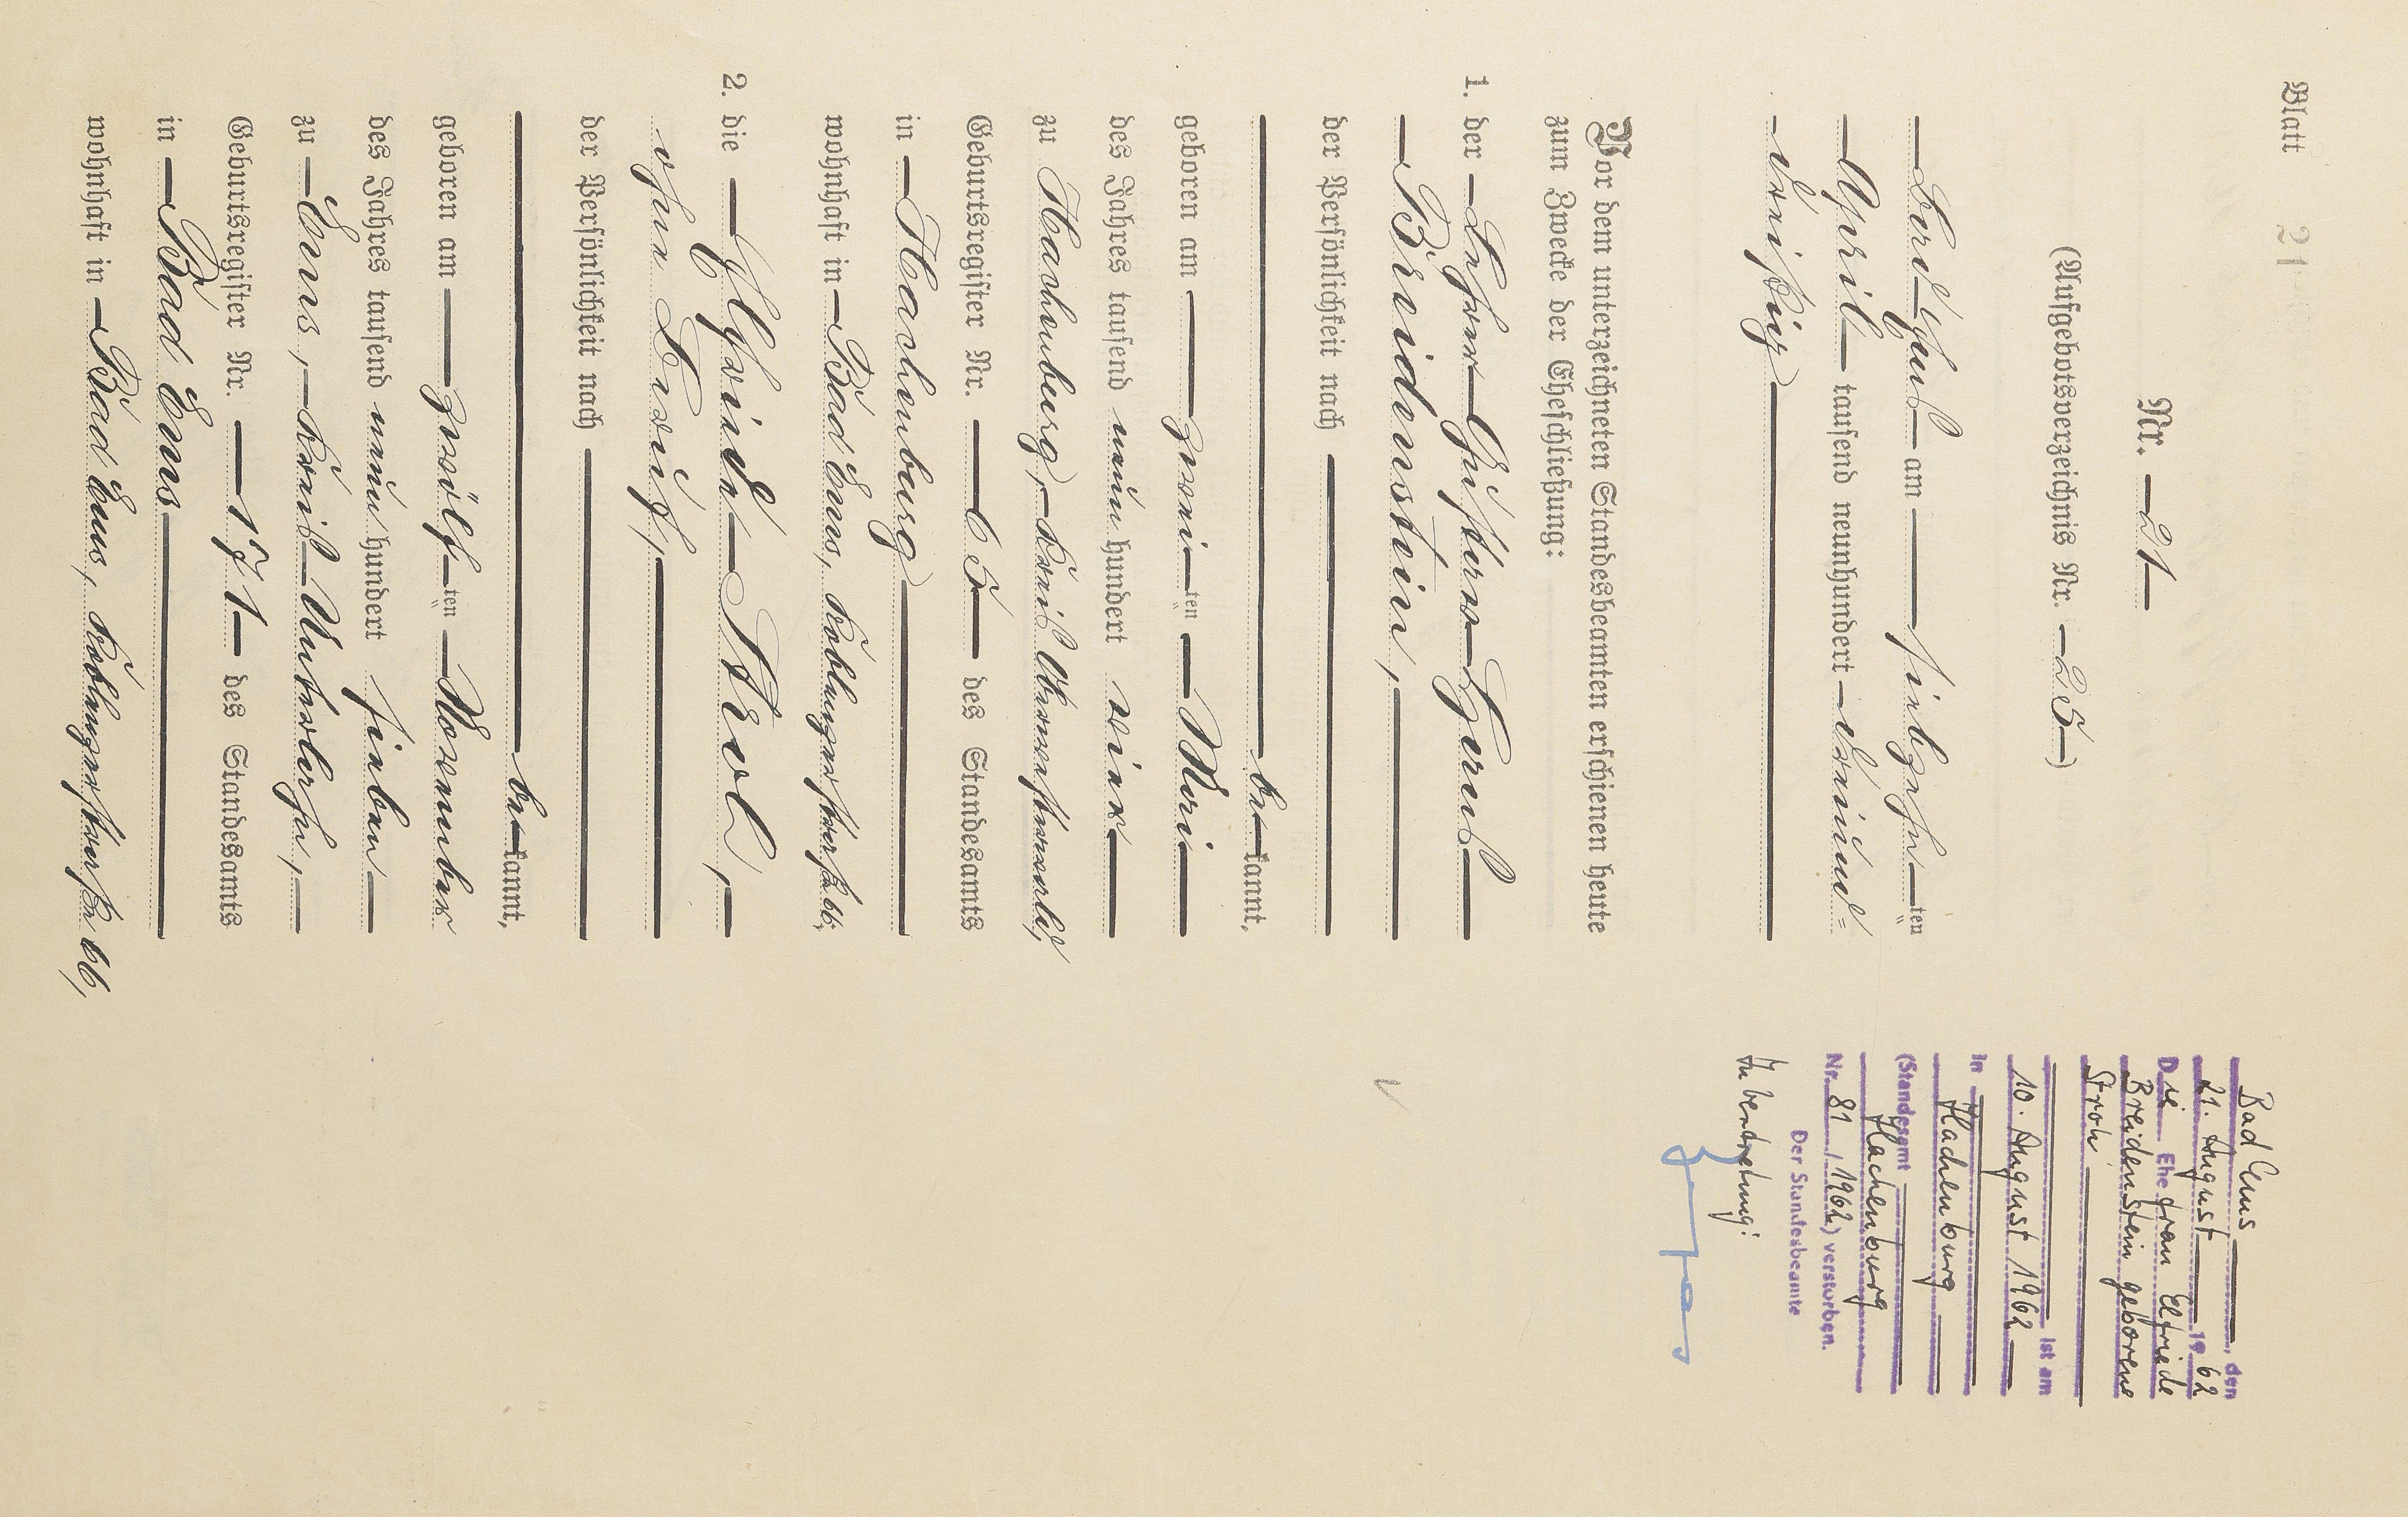 Blatt 21
Nr. 21
(Aufgebotsverzeichnis Nr. 25)
Bad Ems am siebzehnten
April tausend neunhundert dreiund=
dreißig
Vor dem unterzeichneten Standesbeamten erschienen heute
zum Zwecke der Eheschließung:
1. der Lehrer Gustav Ernst
Breidenstein,
der Persönlichkeit nach
be kannt,
geboren am zweiten Mai
des Jahres tausend neun hundert vier
zu Hachenburg, Kreis Oberwesterwald,
Geburtsregister Nr. 65 des Standesamts
in Hachenburg
wohnhaft in Bad Ems, Koblenzerstraße 66,
2. die Elfriede Stroh,
ohne Beruf,
der Persönlichkeit nach
be kannt,
geboren am zwölften November
des Jahres tausend neun hundert sieben
zu Ems, Kreis Unterlahn,
Geburtsregister Nr. 171 des Standesamts
in Bad Ems
wohnhaft in Bad Ems, Koblenzerstraße 66,
Bad Ems, den
21. August 1962
Die Ehefrau Elfriede
Breidenstein geborene
Stroh
ist am
10. August 1962
in Hachenburg
(Standesamt Hachenburg
Nr. 81/1962) verstorben.
Der Standesbeamte
In Vertretung: